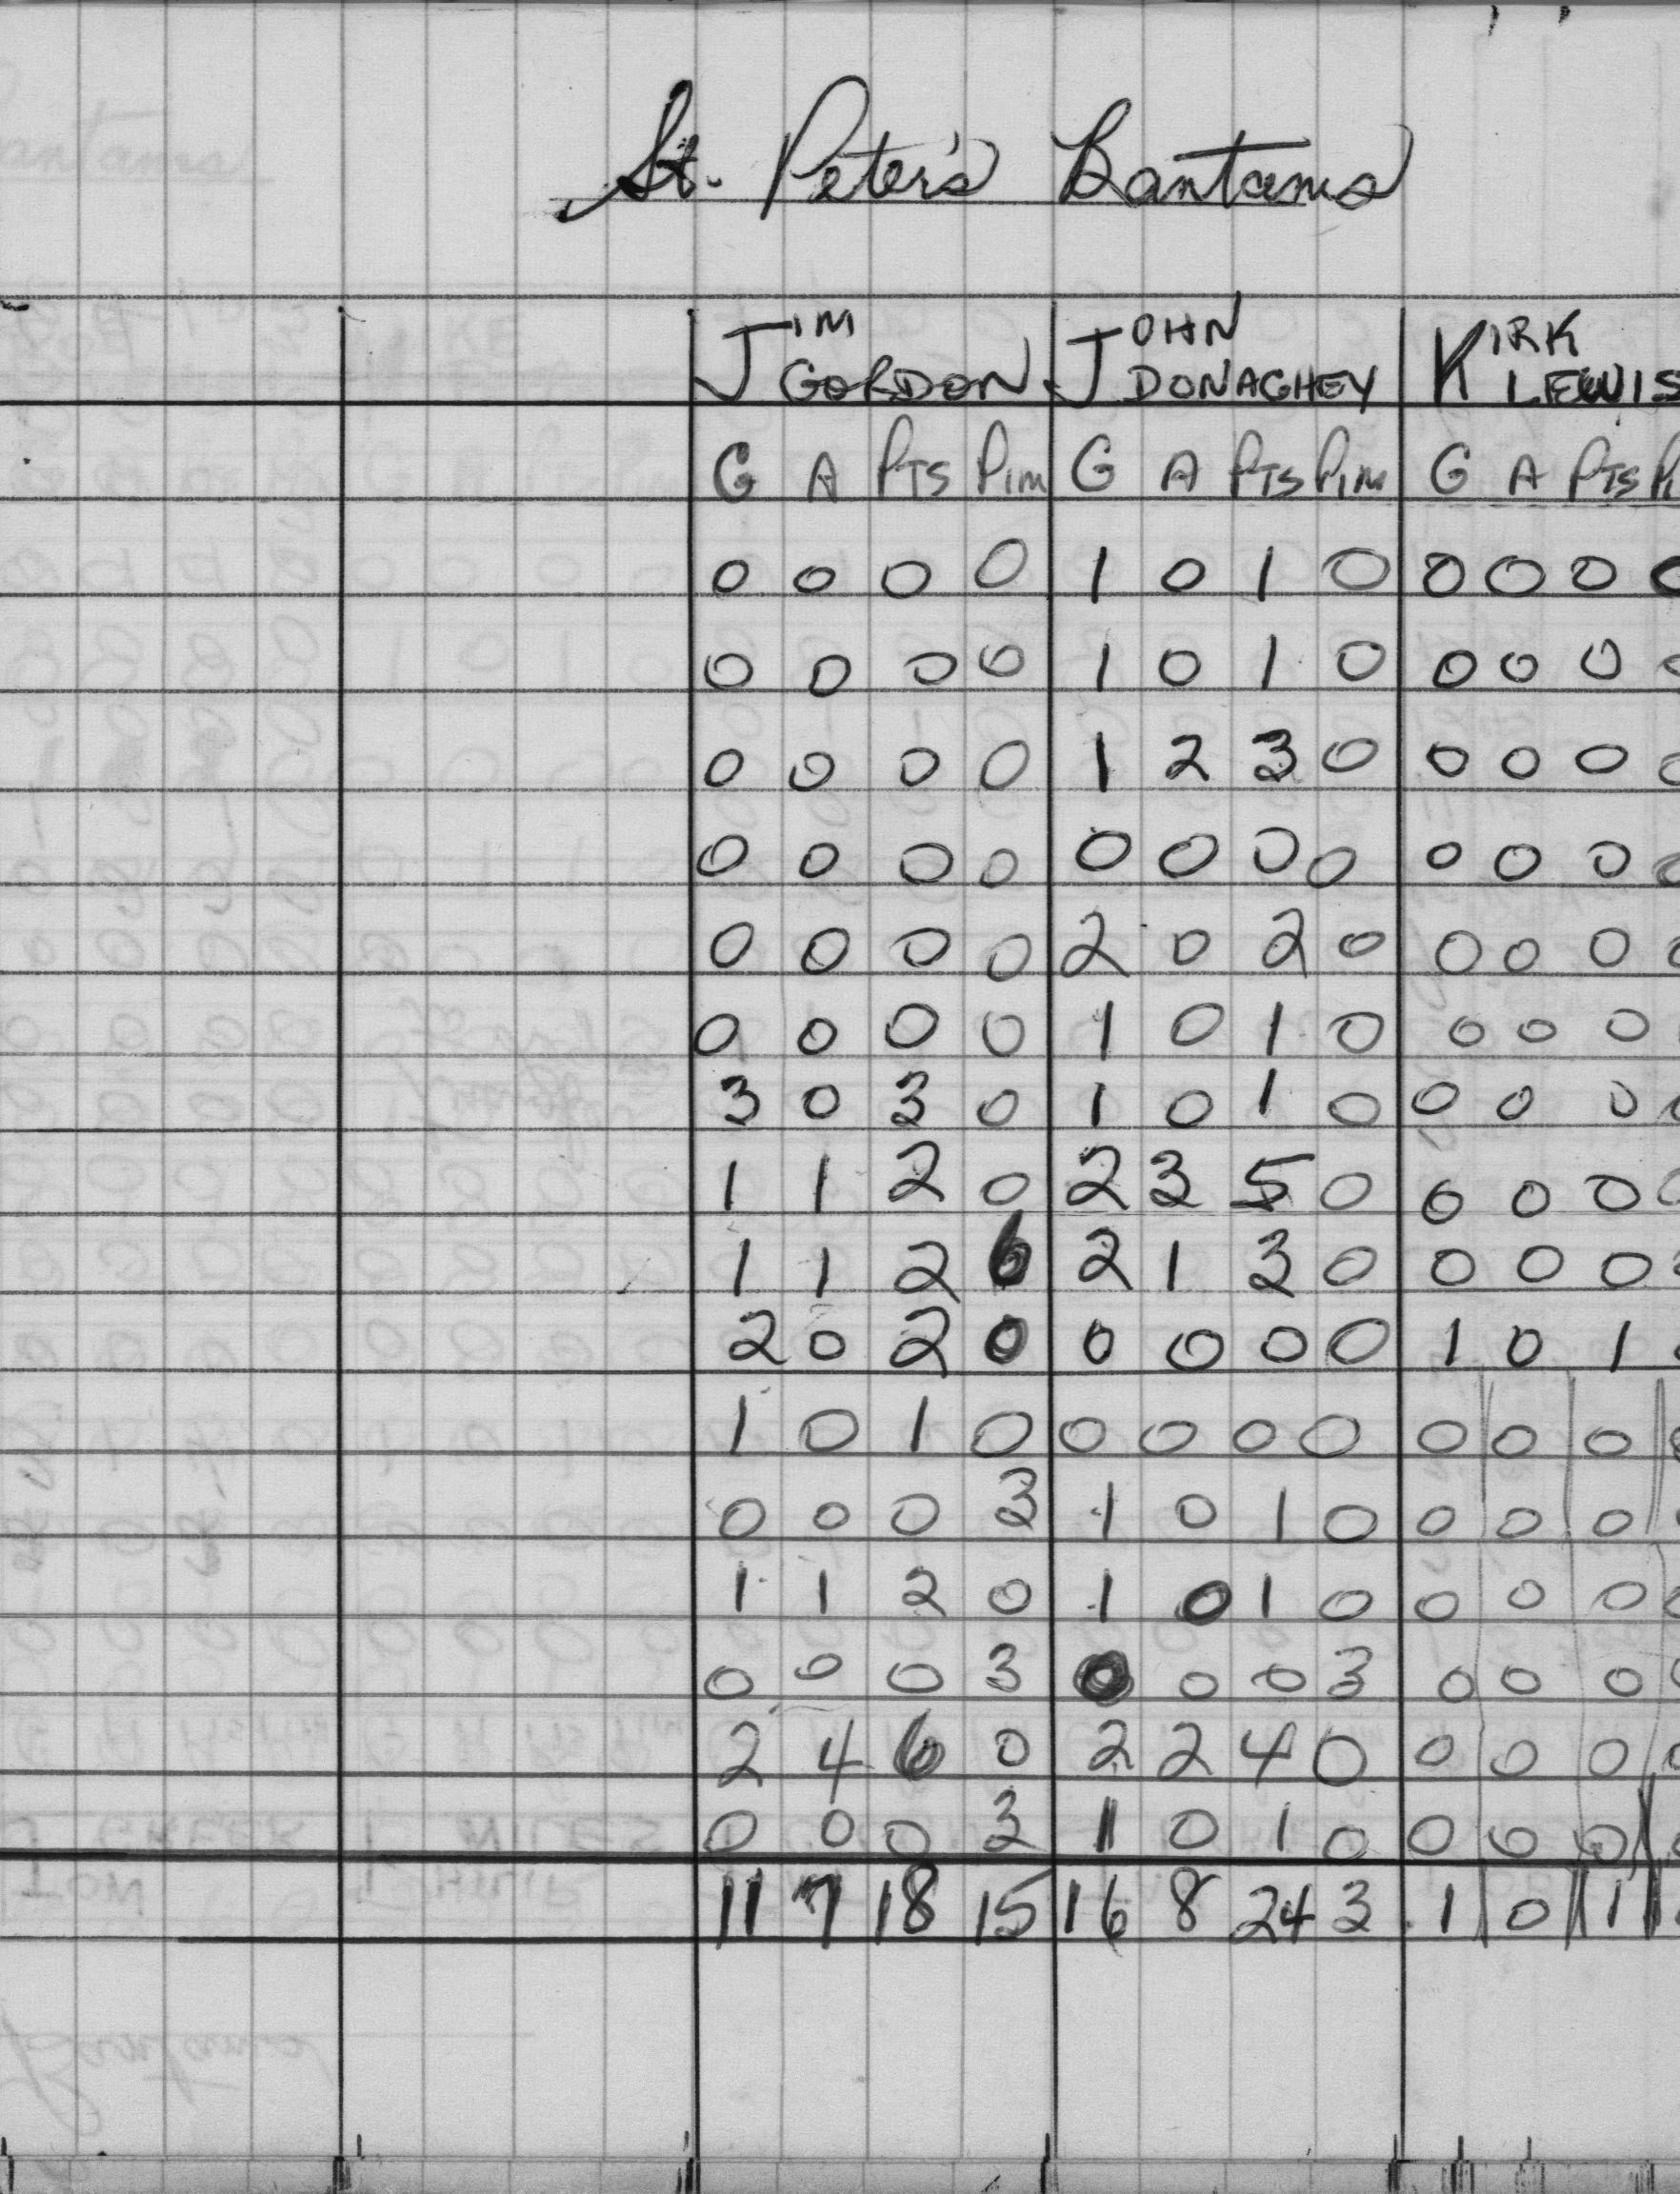 St. Peter's Bantams
JIM GORDON JOHN DONAGHEY KIRK LEWIS
G A PTS PIM G A PTS PIM G A PTS
0 0 0 0 1 0 1 0 0 0 0 0
0 0 0 0 1 0 1 0 0 0 0
0 0 0 0 1 2 3 0 0 0 0
0 0 0 0 0 0 0 0 0 0 0
0 0 0 0 2 0 2 0 0 0 0
0 0 0 0 1 0 1 0 0 0 0
3 0 3 0 1 0 1 0 0 0 0
1 1 2 0 2 3 5 0 0 0 0
1 1 2 6 2 1 3 0 0 0 0
2 0 2 0 0 0 0 0 1 0 1
1 0 1 0 0 0 0 0 0 0 0
0 0 0 3 1 0 1 0 0 0 0
1 1 2 0 1 0 1 0 0 0 0
0 0 0 3 0 0 0 3 0 0 0
2 4 6 0 2 2 4 0 0 0 0
0 0 0 3 1 0 1 0 0 0 0
11 7 18 15 16 8 24 3 1 0 1